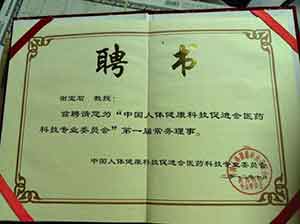 聘书
谢宝石 教授：
兹聘请您为“中国人体健康科技促进会医药
科技专业委员会”第一届常务理事。
中国人体健康科技促进会医药科技专业委员会